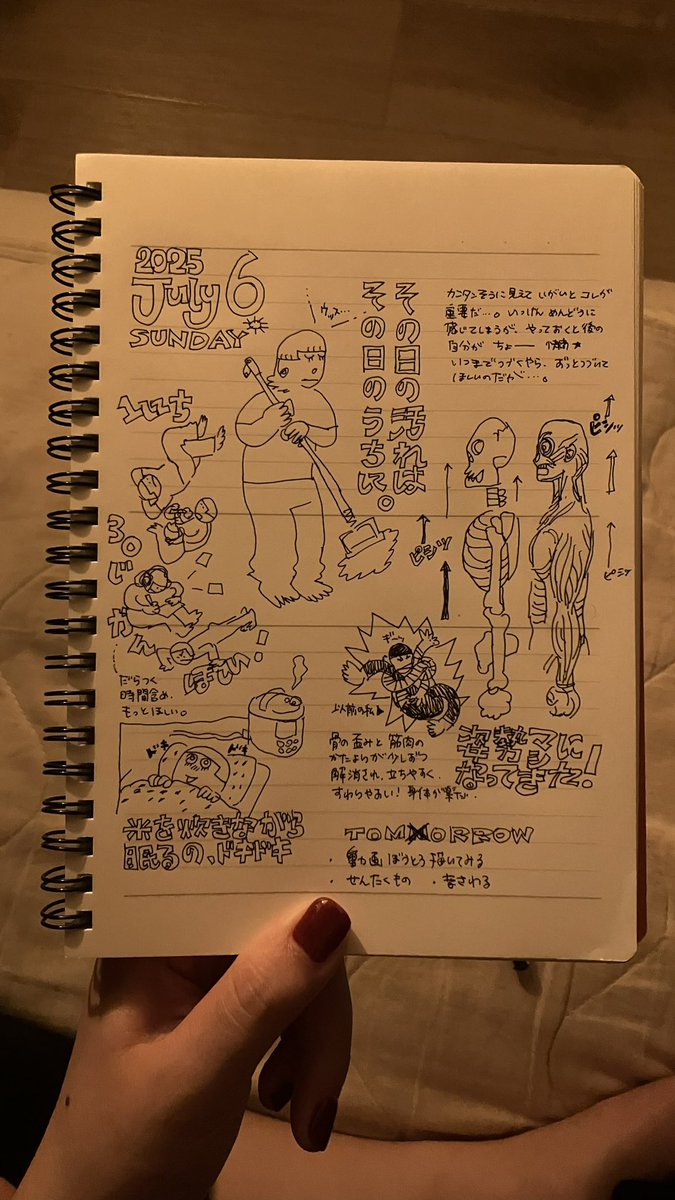 2025
July 6
SUNDAY
ウッス…
その日の汚れは
その日のうちに。
カンタンそうに見えて いがいと コレが
重要だ…。いっけん めんどうに
感じてしまうが、やっておくと後の
自分が ちょー
いつまでつづくやら、ずっとつづいて
ほしいのだが…。
1にち
30じ
かん
ほしい!
だらつく
時間含め、
もっとほしい。
ピシッ
ピシッ
ピシッ
ギーッ
前の私▶
骨の歪みと 筋肉の
かたよりが少しずつ
解消され、立ちやすく、
すわりやすい! 身体が楽だ。
姿勢がマジに
なってきた!
ドキ
ドキ
米を炊きながら
眠るの、ドキドキ
TOMORROW
・動画ぼうとう描いてみる
・せんたくもの ・さわる